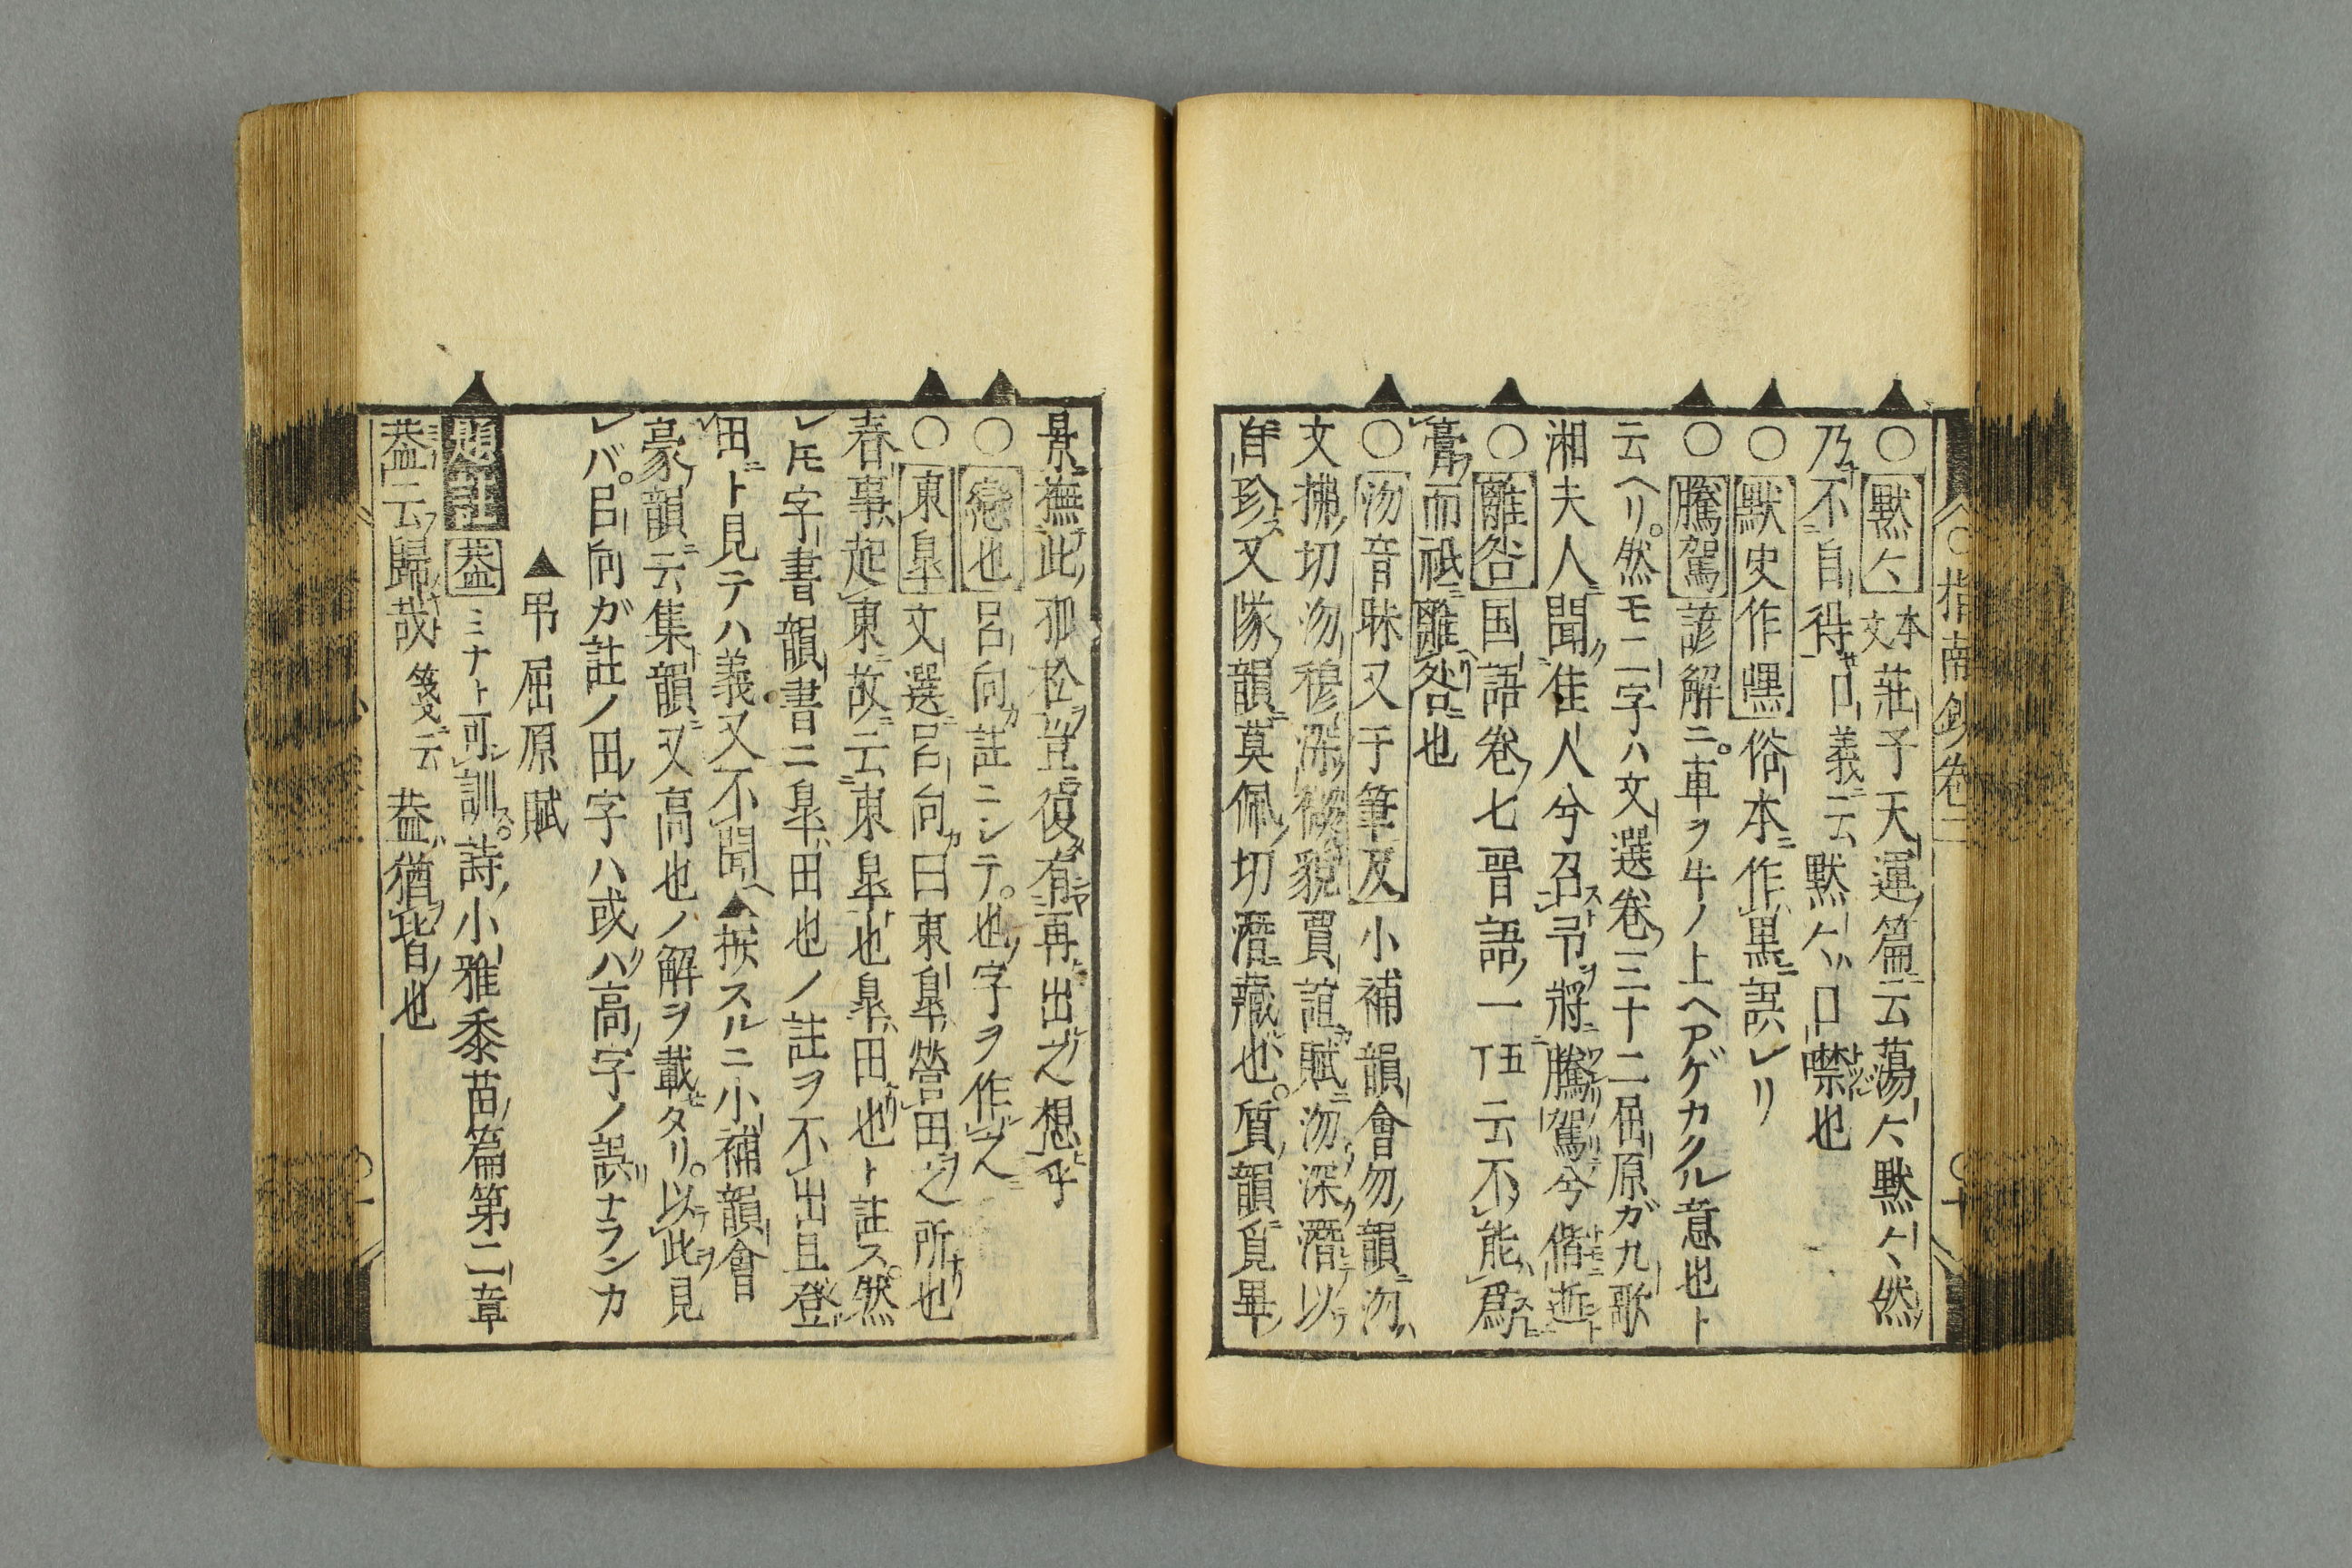 ○黙々本文莊子天運篇云蕩々黙々然
乃不自得口義云黙々口噤也
○默史作嘿俗本作黒誤レリ
○騰駕諺解ニ車ヲ牛ノ上ヘアゲカクル意也ト
云ヘリ然モ二字ハ文選卷三十二屈原ガ九歌
湘夫人聞佳人兮召予將騰駕兮偕逝
○離咎国語卷七晋語一五丁云不能爲
膏而祗離咎也
○沕音昧又于筆反小補韻會勿韻沕
文拂切沕穆深微貌賈誼賦沕深潛以
自珍又隊韻莫佩切潛藏也質韻覓畢
指南鈔卷二
景撫此孤松豈復有再出之想乎
○也呂向註ニシテ也字ヲ作之
○東皐文選呂向曰東皐營田之所也
春事起東故云東皐也皐田也ト註ス然
レ𪜈字書韻書ニ皐田也ノ註ヲ不出且登
田ト見テハ義又不聞▲按スルニ小補韻會
豪韻云集韻又高也ノ解ヲ載タリ以此見
レバ呂向ガ註ノ田字ハ或ハ高字ノ誤ナランカ
▲吊屈原賦
題註 盍ミナト可訓詩小雅黍苗篇第二章
盍云歸哉箋云盍猶皆也